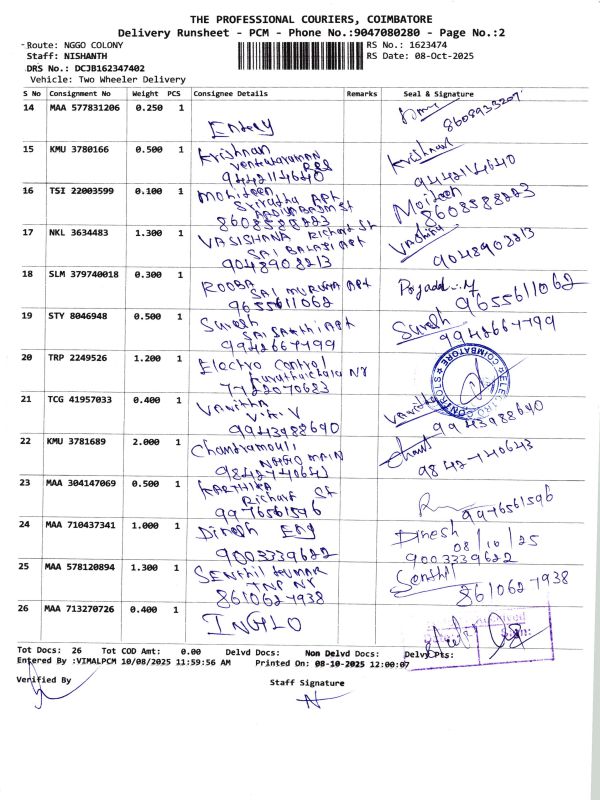 THE PROFESSIONAL COURIERS, COIMBATORE
Delivery Runsheet - PCM - Phone No.:9047080280 - Page No.:2
Route: NGGO COLONY RS No.: 1623474
Staff: NISHANTH RS Date: 08-Oct-2025
DRS No.: DCJB162347402
Vehicle: Two Wheeler Delivery
S No Consignment No Weight PCS Consignee Details Remarks Seal & Signature
14 MAA 577831206 0.250 1
Entery 8608933207
15 KMU 3780166 0.500 1 Krishnan Krishnan
Venkataraman
9442114640 9442114640
16 TSI 22003599 0.100 1 Mohideen
Apt
8608588223 8608588223
17 NKL 3634483 1.300 1 VASISHANA Richard St
SAI BALAJI Apt
9048908213 9048908213
18 SLM 379740018 0.300 1 ROOBA
SAI MURUGA Apt
9655611062 9655611062
19 STY 8046948 0.500 1 Suresh Suresh
SAI SARTHI Apt
9942667799 9942667799
20 TRP 2249526 1.200 1 Electro Control
COIMBATORE
21 TCG 41957033 0.400 1 Vanitha Vanitha
9943988690 9943988690
22 KMU 3781689 2.000 1 Chandramouli
NGGO MAIN
9842740643 9842740643
23 MAA 304147069 0.500 1 KARTHIKA
Richard St
9976561596 9976561596
24 MAA 710437341 1.000 1 Dinesh Eng Dinesh
08/10/25
9003339622 9003339622
25 MAA 578120894 1.300 1 SENthil kumar Senthil
TNP NR
8610627938 8610627938
26 MAA 713270726 0.400 1 INGLO
Tot Docs: 26 Tot COD Amt: 0.00 Delvd Docs: Non Delvd Docs: Delvy Pts:
Entered By :VIMALPCM 10/08/2025 11:59:56 AM Printed On: 08-10-2025 12:00:07
Verified By Staff Signature